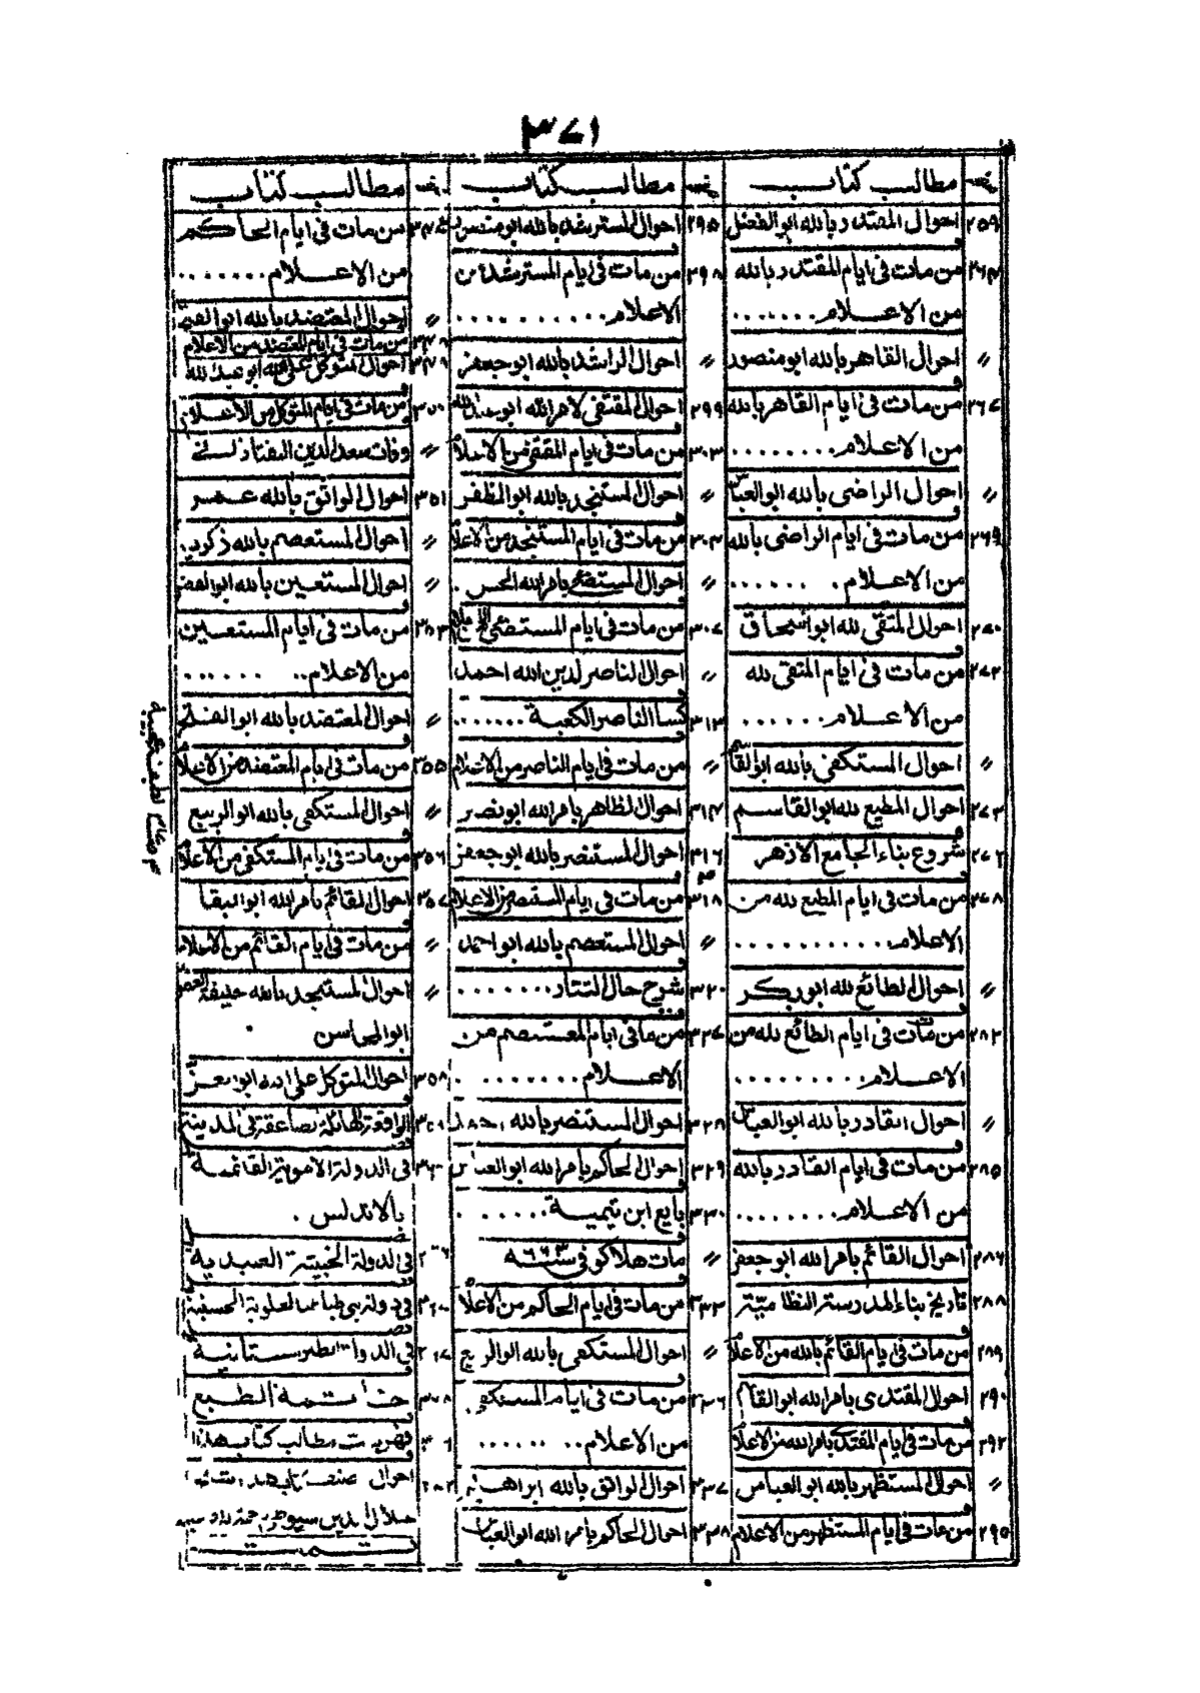 ٣٧١
مطالب كتاب
٢٥٩ احوال المقتدر بالله ابو الفضل
من مات فى ايام المقتدر بالله
من الاعلام
〃 احوال القاهر بالله ابو منصور
٢٦٧ من مات فى ايام القاهر بالله
من الاعلام
〃 احوال الراضى بالله ابو العباس
٢٦٩ من مات فى ايام الراضى بالله
من الاعلام
٢٧٠ احوال المتقى لله ابو اسحاق
٢٧٢ من مات فى ايام المتقى لله
من الاعلام
〃 احوال المستكفى بالله ابو القاسم
٢٧٣ احوال المطيع لله ابو القاسم
٢٧٦ شروع بناء الجامع الازهر
٢٧٨ من مات فى ايام المطيع لله من
الاعلام
〃 احوال الطائع لله ابو بكر
٢٨٢ من مات فى ايام الطائع لله من
الاعلام
〃 احوال القادر بالله ابو العباس
٢٨٥ من مات فى ايام القادر بالله
من الاعلام
٢٨٦ احوال القائم بامر الله ابو جعفر
٢٨٨ تاريخ بناء المدرسة النظامية
٢٨٩ من مات فى ايام القائم بالله من الاعلام
٢٩٠ احوال المقتدى بامر الله ابو القاسم
٢٩٢ من مات فى ايام المقتدى بامر الله من الاعلام
〃 احوال المستظهر بالله ابو العباس
٢٩٥ من مات فى ايام المستظهر من الاعلام
مطالب كتاب
٢٩٥ احوال المسترشد بالله ابو منصور
٢٩٨ من مات فى ايام المسترشد من
الاعلام
〃 احوال الراشد بالله ابو جعفر
٢٩٩ احوال المقتفى لامر الله ابو عبد الله
٣٠٣ من مات فى ايام المقتفى من الاعلام
〃 احوال المستنجد بالله ابو المظفر
من مات فى ايام المستنجد من الاعلام
〃 احوال المستضئ بامر الله الحسن
٣٠٧ من مات فى ايام المستضئ
〃 احوال الناصر لدين الله احمد
٣١٣ كسا الناصر الكعبة
〃 من مات فى ايام الناصر من الاعلام
٣١٤ احوال الظاهر بامر الله ابو نصر
٣١٦ احوال المستنصر بالله ابو جعفر
٣١٨ من مات فى ايام المستنصر من الاعلام
〃 احوال المستعصم بالله ابو احمد
٣٢٠ شرح حال التتار
٣٢٧ من مات فى ايام المعتصم من
الاعلام
٣٢٨ احوال المستنصر بالله احمد
٣٢٩ احوال الحاكم بامر الله ابو العباس
٣٣٠ بايع ابن تيمية
〃 مات هلاكو فى سنة ٦٦٣ه
٣٣٣ من مات فى ايام الحاكم من الاعلام
〃 احوال المستكفى بالله ابو الربيع
٣٣٦ من مات فى ايام المستكفى
من الاعلام
٣٣٧ احوال الواثق بالله ابراهيم
٣٣٨ احوال الحاكم بامر الله ابو العباس
مطالب كتاب
من مات فى ايام الحاكم
من الاعلام
〃 احوال المعتضد بالله ابو الفتح
٣٤٨ من مات فى ايام المعتضد من الاعلام
٣٤٩ احوال المتوكل على الله ابو عبد الله
٣٥٠ من مات فى ايام المتوكل من الاعلام
〃 وفات سعد الدين التفتازانى
٣٥١ احوال الواثق بالله عمر
〃 احوال المستعصم بالله زكريا
〃 احوال المستعين بالله ابو الفضل
٣٥٣ من مات فى ايام المستعين
من الاعلام
〃 احوال المعتضد بالله ابو الفتح
٣٥٥ من مات فى ايام المعتضد من الاعلام
〃 احوال المستكفى بالله ابو الربيع
٣٥٦ من مات فى ايام المستكفى من الاعلام
٣٥٧ احوال القائم بامر الله ابو البقا
〃 من مات فى ايام القائم من الاعلام
〃 احوال المستنجد بالله خليفة العصر
ابو المحاسن
٣٥٨ احوال المتوكل على الله ابو العز
الواقعة الهائلة بصاعقة فى المدينة
٣٦٠ فى الدولة الاموية القائمة
بالاندلس
فصل
فى الدولة الخبيثة العبيدية
فصل
فى دولة بنى طباطبا العلوية الحسنية
فصل
فى الدولة الطبرستانية
خاتمة الطبع
فهرست مطالب كتاب هذا
احوال
جلال الدين سيوطى
تمت